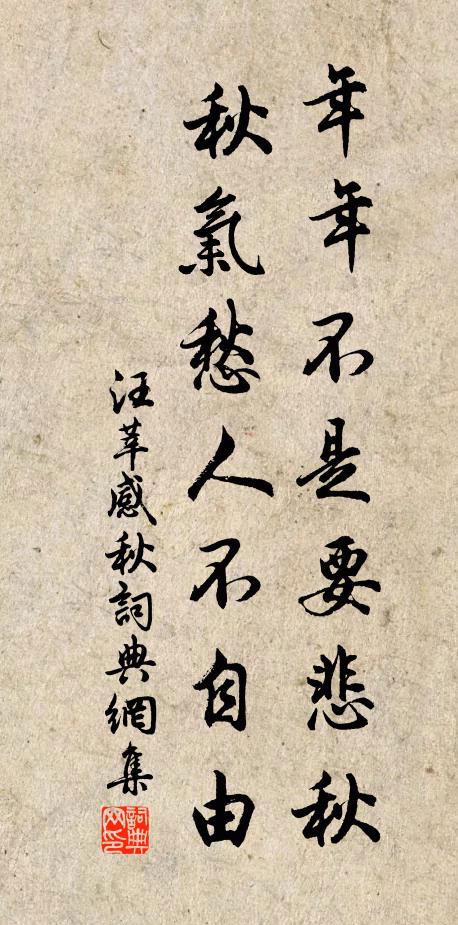 年年不是要悲秋
秋氣愁人不自由
汪莘感秋詞典網集
詞典網印